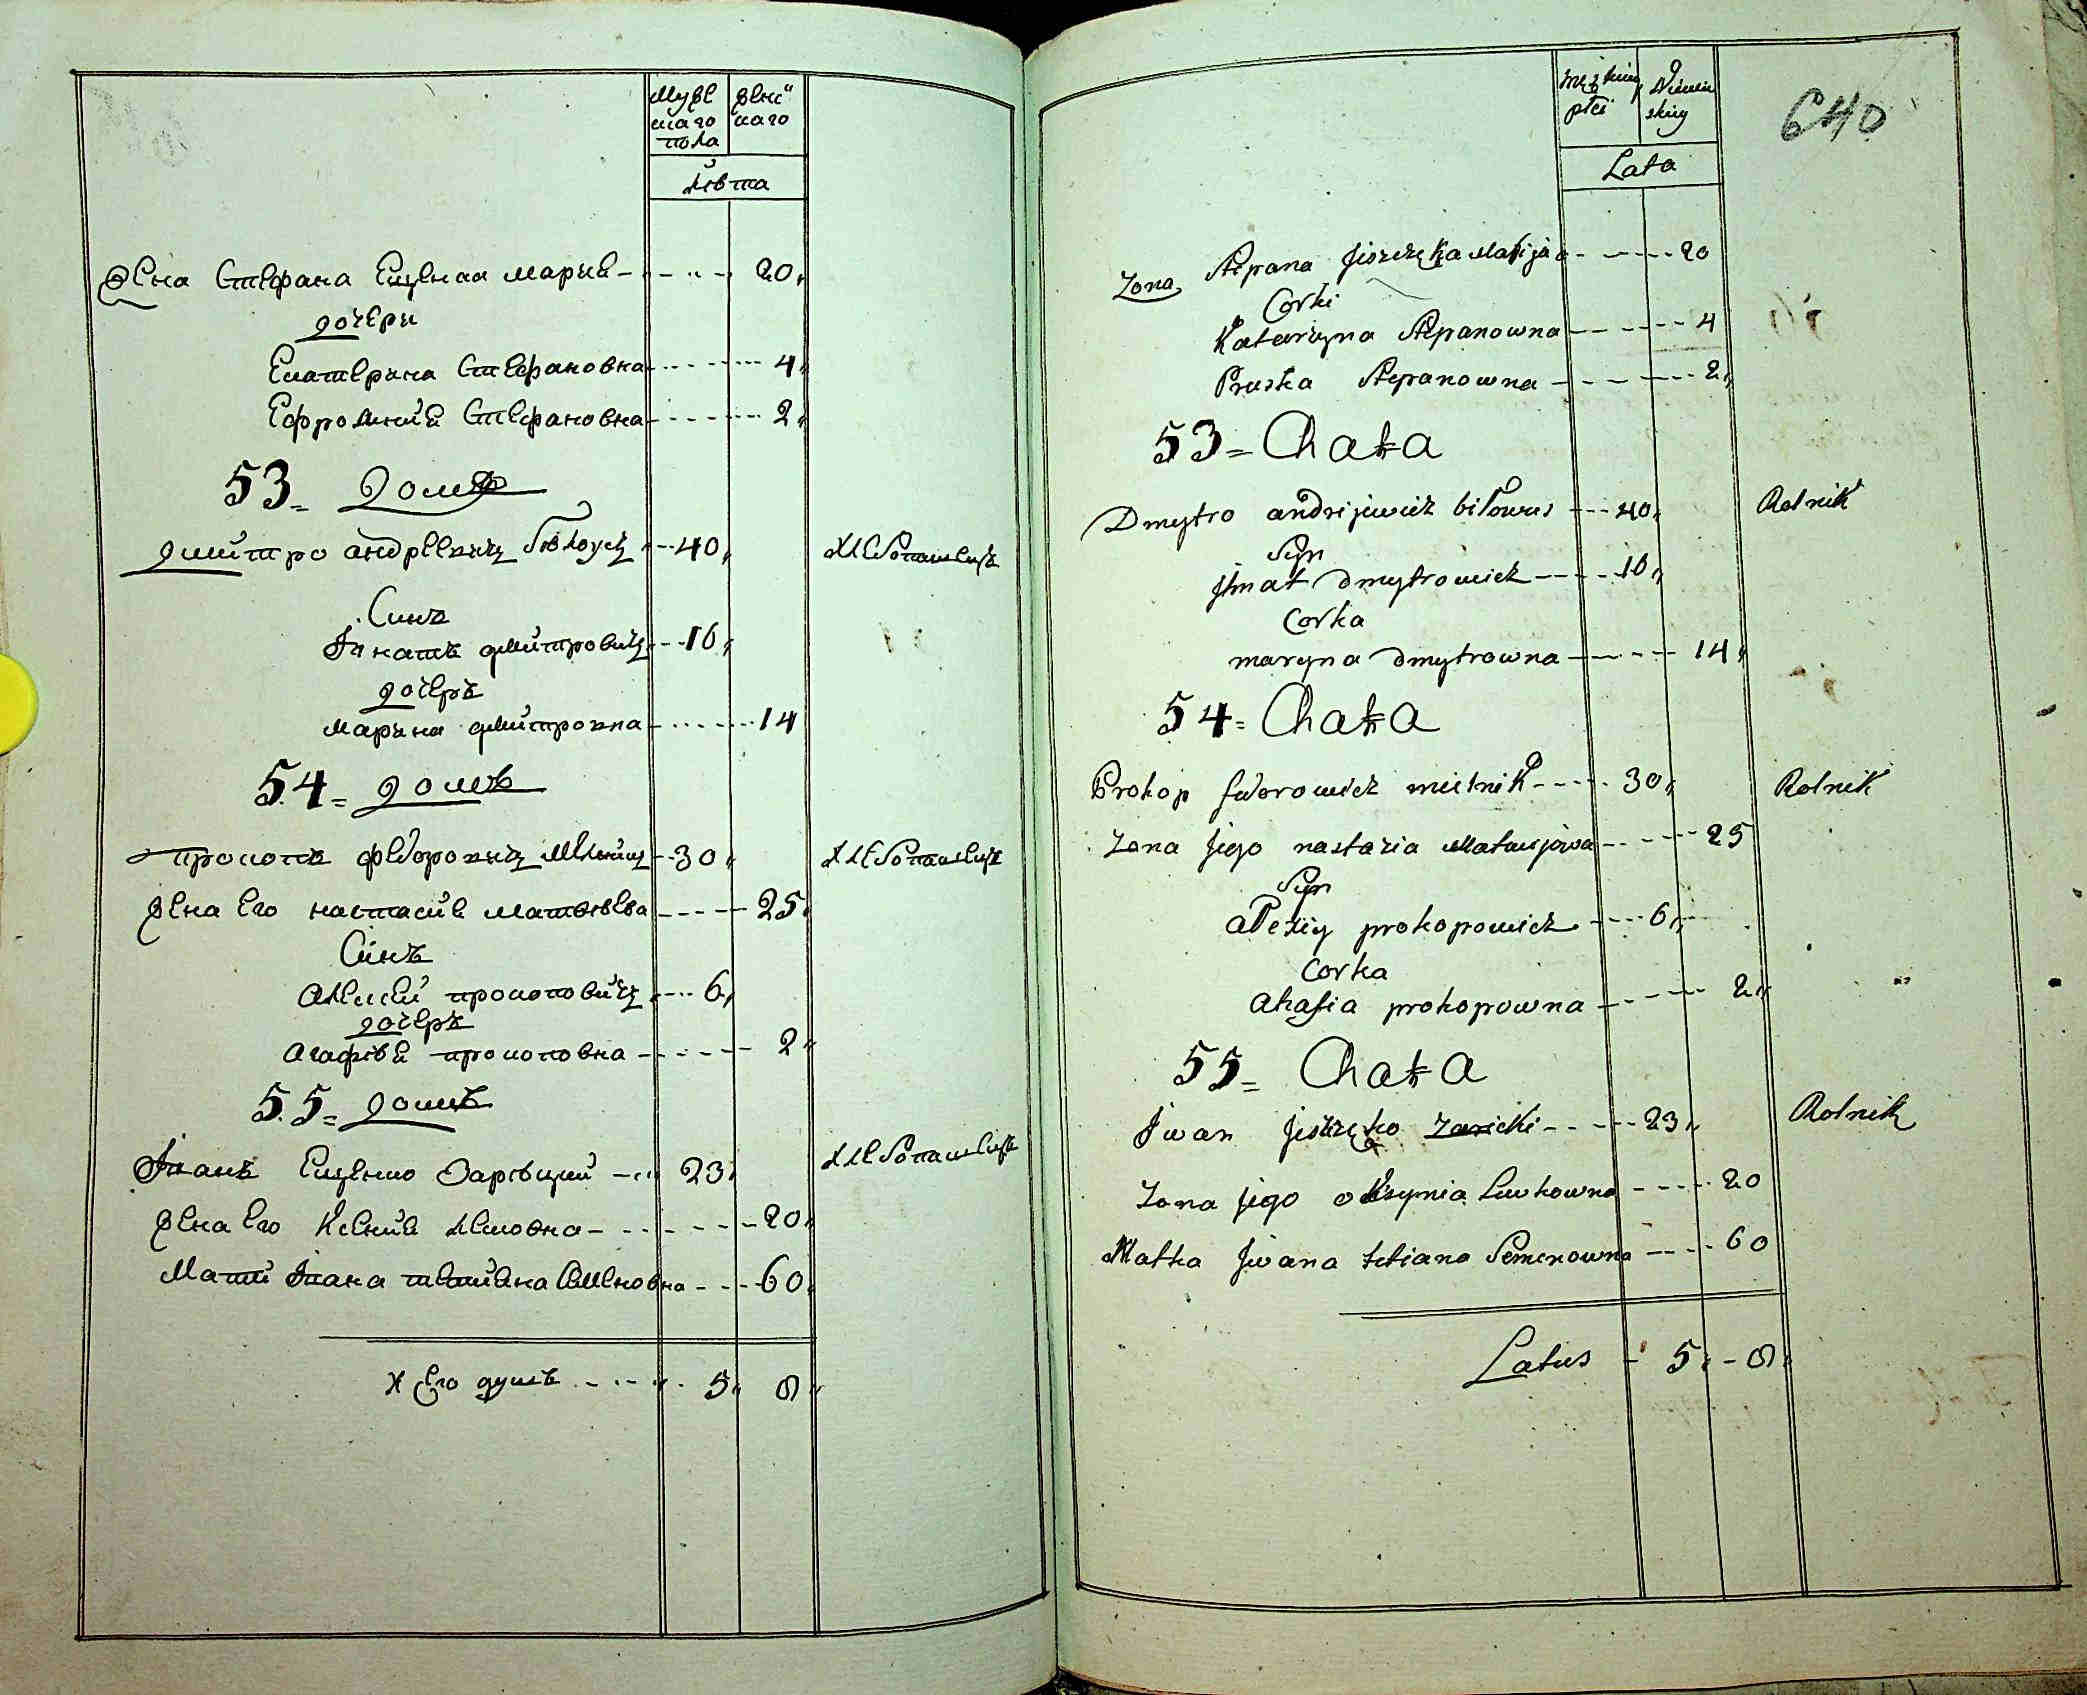 Муже
скаго
пола
женс
каго
Лѣта
Жена Стефана Ещенка Мариѣ 20
дочери
Екатерина Стефановна 4
Ефросинiй Стефановна 2
53 = домъ
Дмитро андреевичъ бѣлоусъ 40 Хлебопашецъ
Синъ
Iгнатъ дмитровичъ 16
дочеръ
Марина дмитровна 14
54 = домъ
прокопъ федоровичъ Мелникъ 30 Хлебопашецъ
Жена Его настасиѣ матвѣева 25
Синъ
Алексѣй прокоповичъ 6
дочеръ
Агафiя прокоповна 2
55 = домъ
Iванъ Ещенко Зарѣцкий 23 Хлебопашецъ
Жена Его Ксениѣ Левковна 20
Мати Iвана татияна Семеновна 60
Всего душъ 5 8
męzkiey
płci
Niewie
skiey
640
Lata
Zona Stepana Jiszczęka Matija 20
Corki
Katarzyna Stepanowna 4
Pruska Stepanowna 2
53 = Chata
Dmytro andrijewicz biłous 40 Rolnik
Syn
Jhnat Dmytrowicz 16
Corka
maryna Dmytrowna 14
54 = Chata
Prokop fedorowicz mielnik 30 Rolnik
Zona jego nastazia Matwijowa 25
Syn
alexiy prokopowicz 6
Corka
ahafia prokopowna 2
55 = Chata
Jwan Jiszczęko Zaricki 23 Rolnik
Zona jego oksynia Lewkowna 20
Matka Jwana tetiana Semenowna 60
Latus 5 8